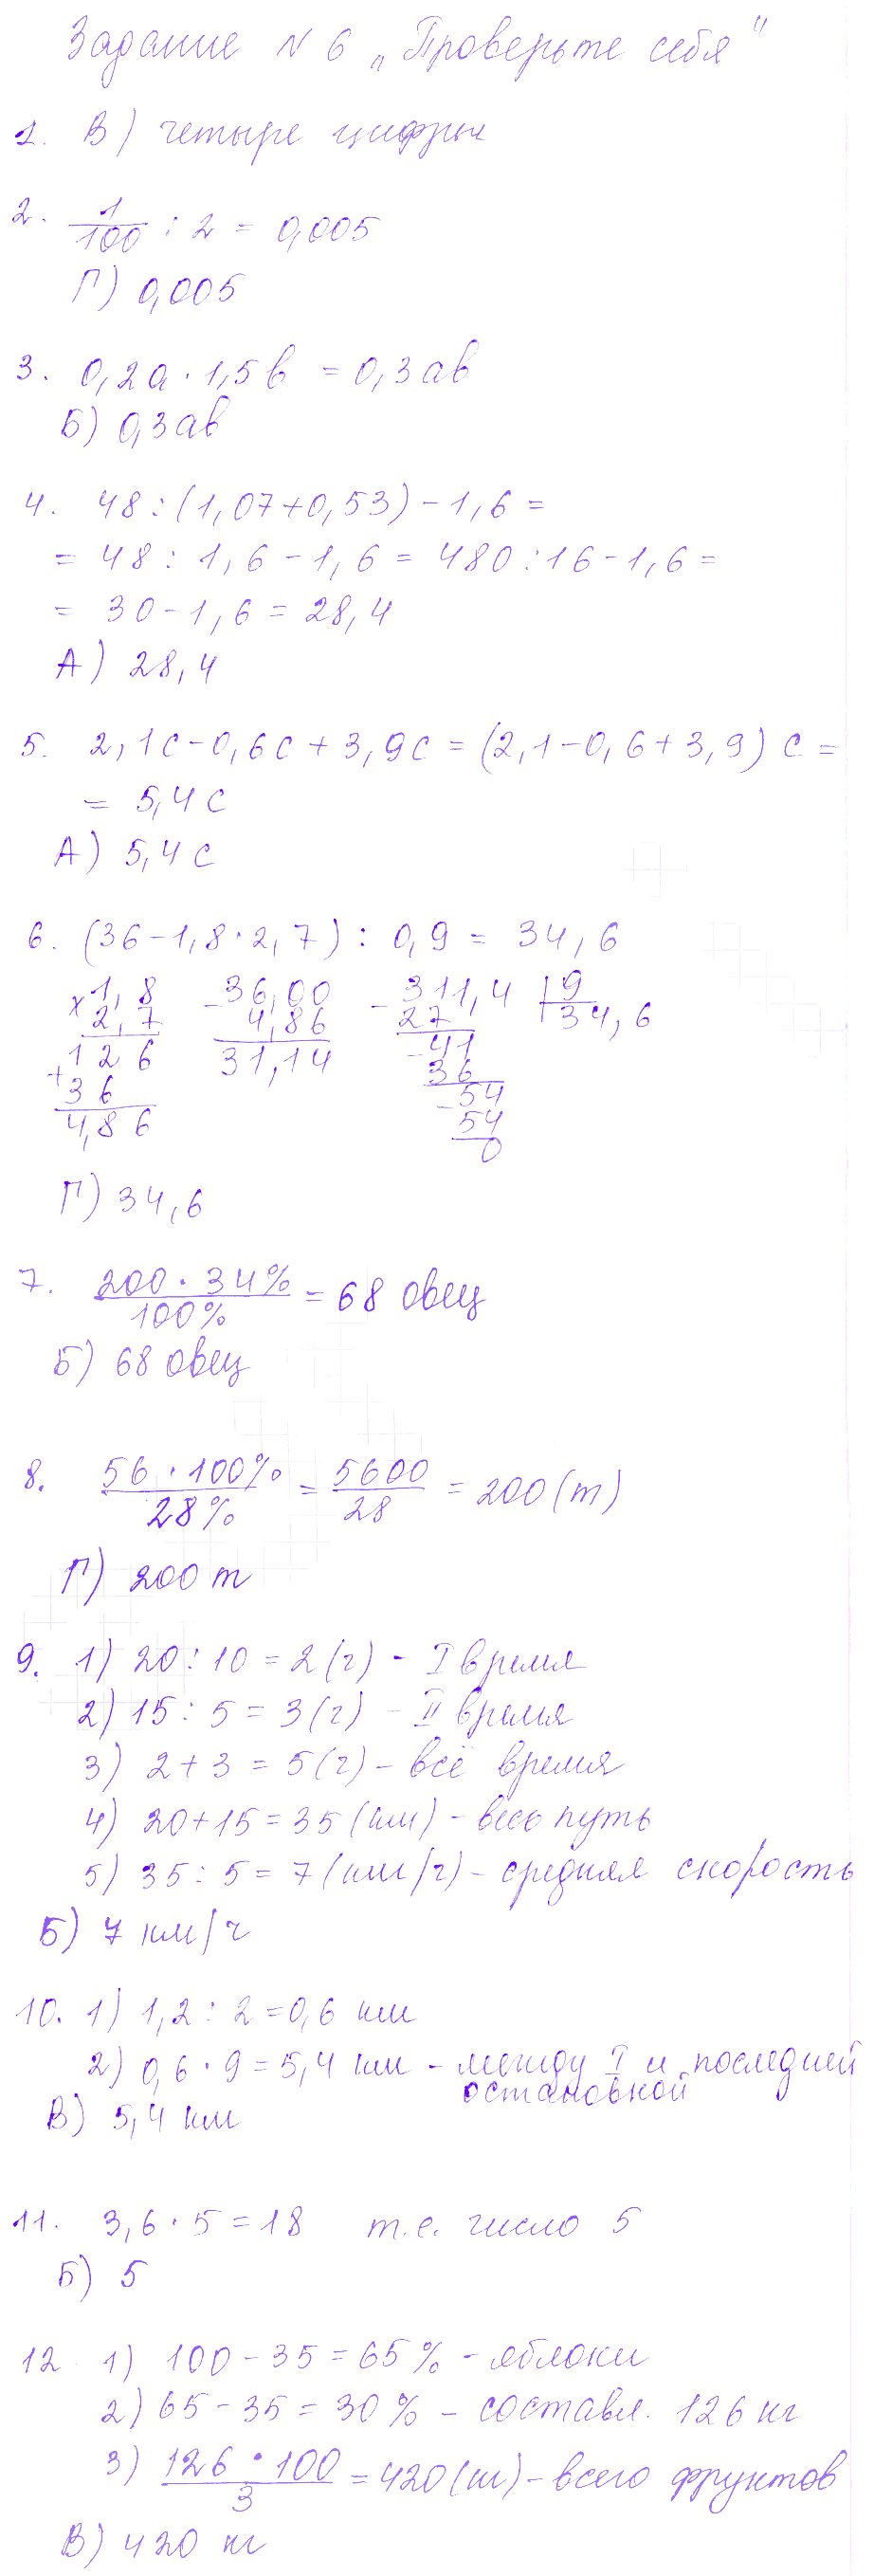 Задание N 6 „Проверьте себя"
1. В) четыре цифры
2. 1/100 : 2 = 0,005
Г) 0,005
3. 0,2а · 1,5в = 0,3ав
Б) 0,3ав
4. 48 : (1,07+0,53) - 1,6 =
= 48 : 1,6 - 1,6 = 480 : 16 - 1,6 =
= 30 - 1,6 = 28,4
А) 28,4
5. 2,1с - 0,6с + 3,9с = (2,1-0,6+3,9) с =
= 5,4с
А) 5,4с
6. (36 - 1,8 · 2,7) : 0,9 = 34,6
× 1,8 - 36,00 - 311,4 | 9
2,7 4,86 27 34,6
+ 126 31,14 - 41
36 36
4,86 - 54
54
0
Г) 34,6
7. 200 · 34% / 100% = 68 овец
Б) 68 овец
8. 56 · 100% / 28% = 5600 / 28 = 200 (т)
Г) 200 т
9. 1) 20 : 10 = 2 (ч) - I время
2) 15 : 5 = 3 (ч) - II время
3) 2 + 3 = 5 (ч) - всё время
4) 20 + 15 = 35 (км) - весь путь
5) 35 : 5 = 7 (км/ч) - средняя скорость
Б) 7 км/ч
10. 1) 1,2 : 2 = 0,6 км
2) 0,6 · 9 = 5,4 км - между I и последней
остановкой
В) 5,4 км
11. 3,6 · 5 = 18 т.е. число 5
Б) 5
12 1) 100 - 35 = 65% - яблоки
2) 65 - 35 = 30% - составл. 126 кг
3) 126 · 100 / 3 = 420 (кг) - всего фруктов
В) 420 кг